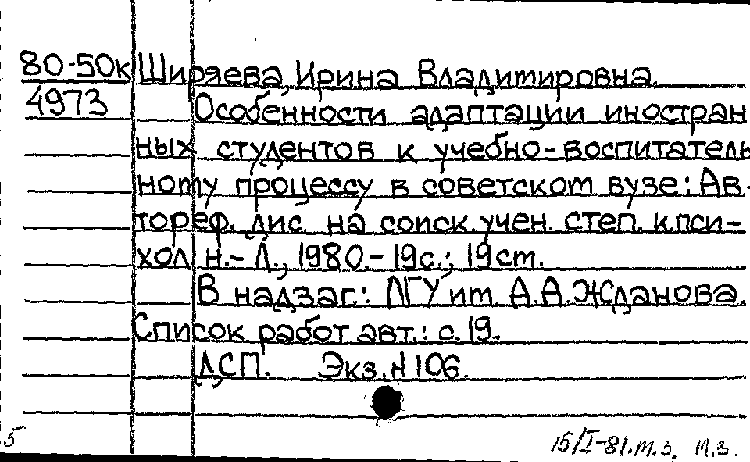 80-50к Ширяева, Ирина Владимировна.
4973 Особенности адаптации иностран
ных студентов к учебно-воспитатель
ному процессу в советском вузе: Ав-
тореф. дис. на соиск. учен. степ. к.пси-
хол. н. - Л., 1980. - 19с.; 19см.
В надзаг.: ЛГУ им. А.А. Жданова.
Список работ авт.: с. 19.
ДСП. Экз. N 106.
5 15/I-81. м.з. м.з.